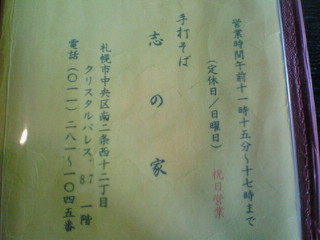 営業時間午前十一時十五分〜十七時まで
(定休日/日曜日)
祝日営業
手打そば
志の家
札幌市中央区南二条西十二丁目
クリスタルパレス、87 一階
電話(〇一一)二八一〜一〇四五番